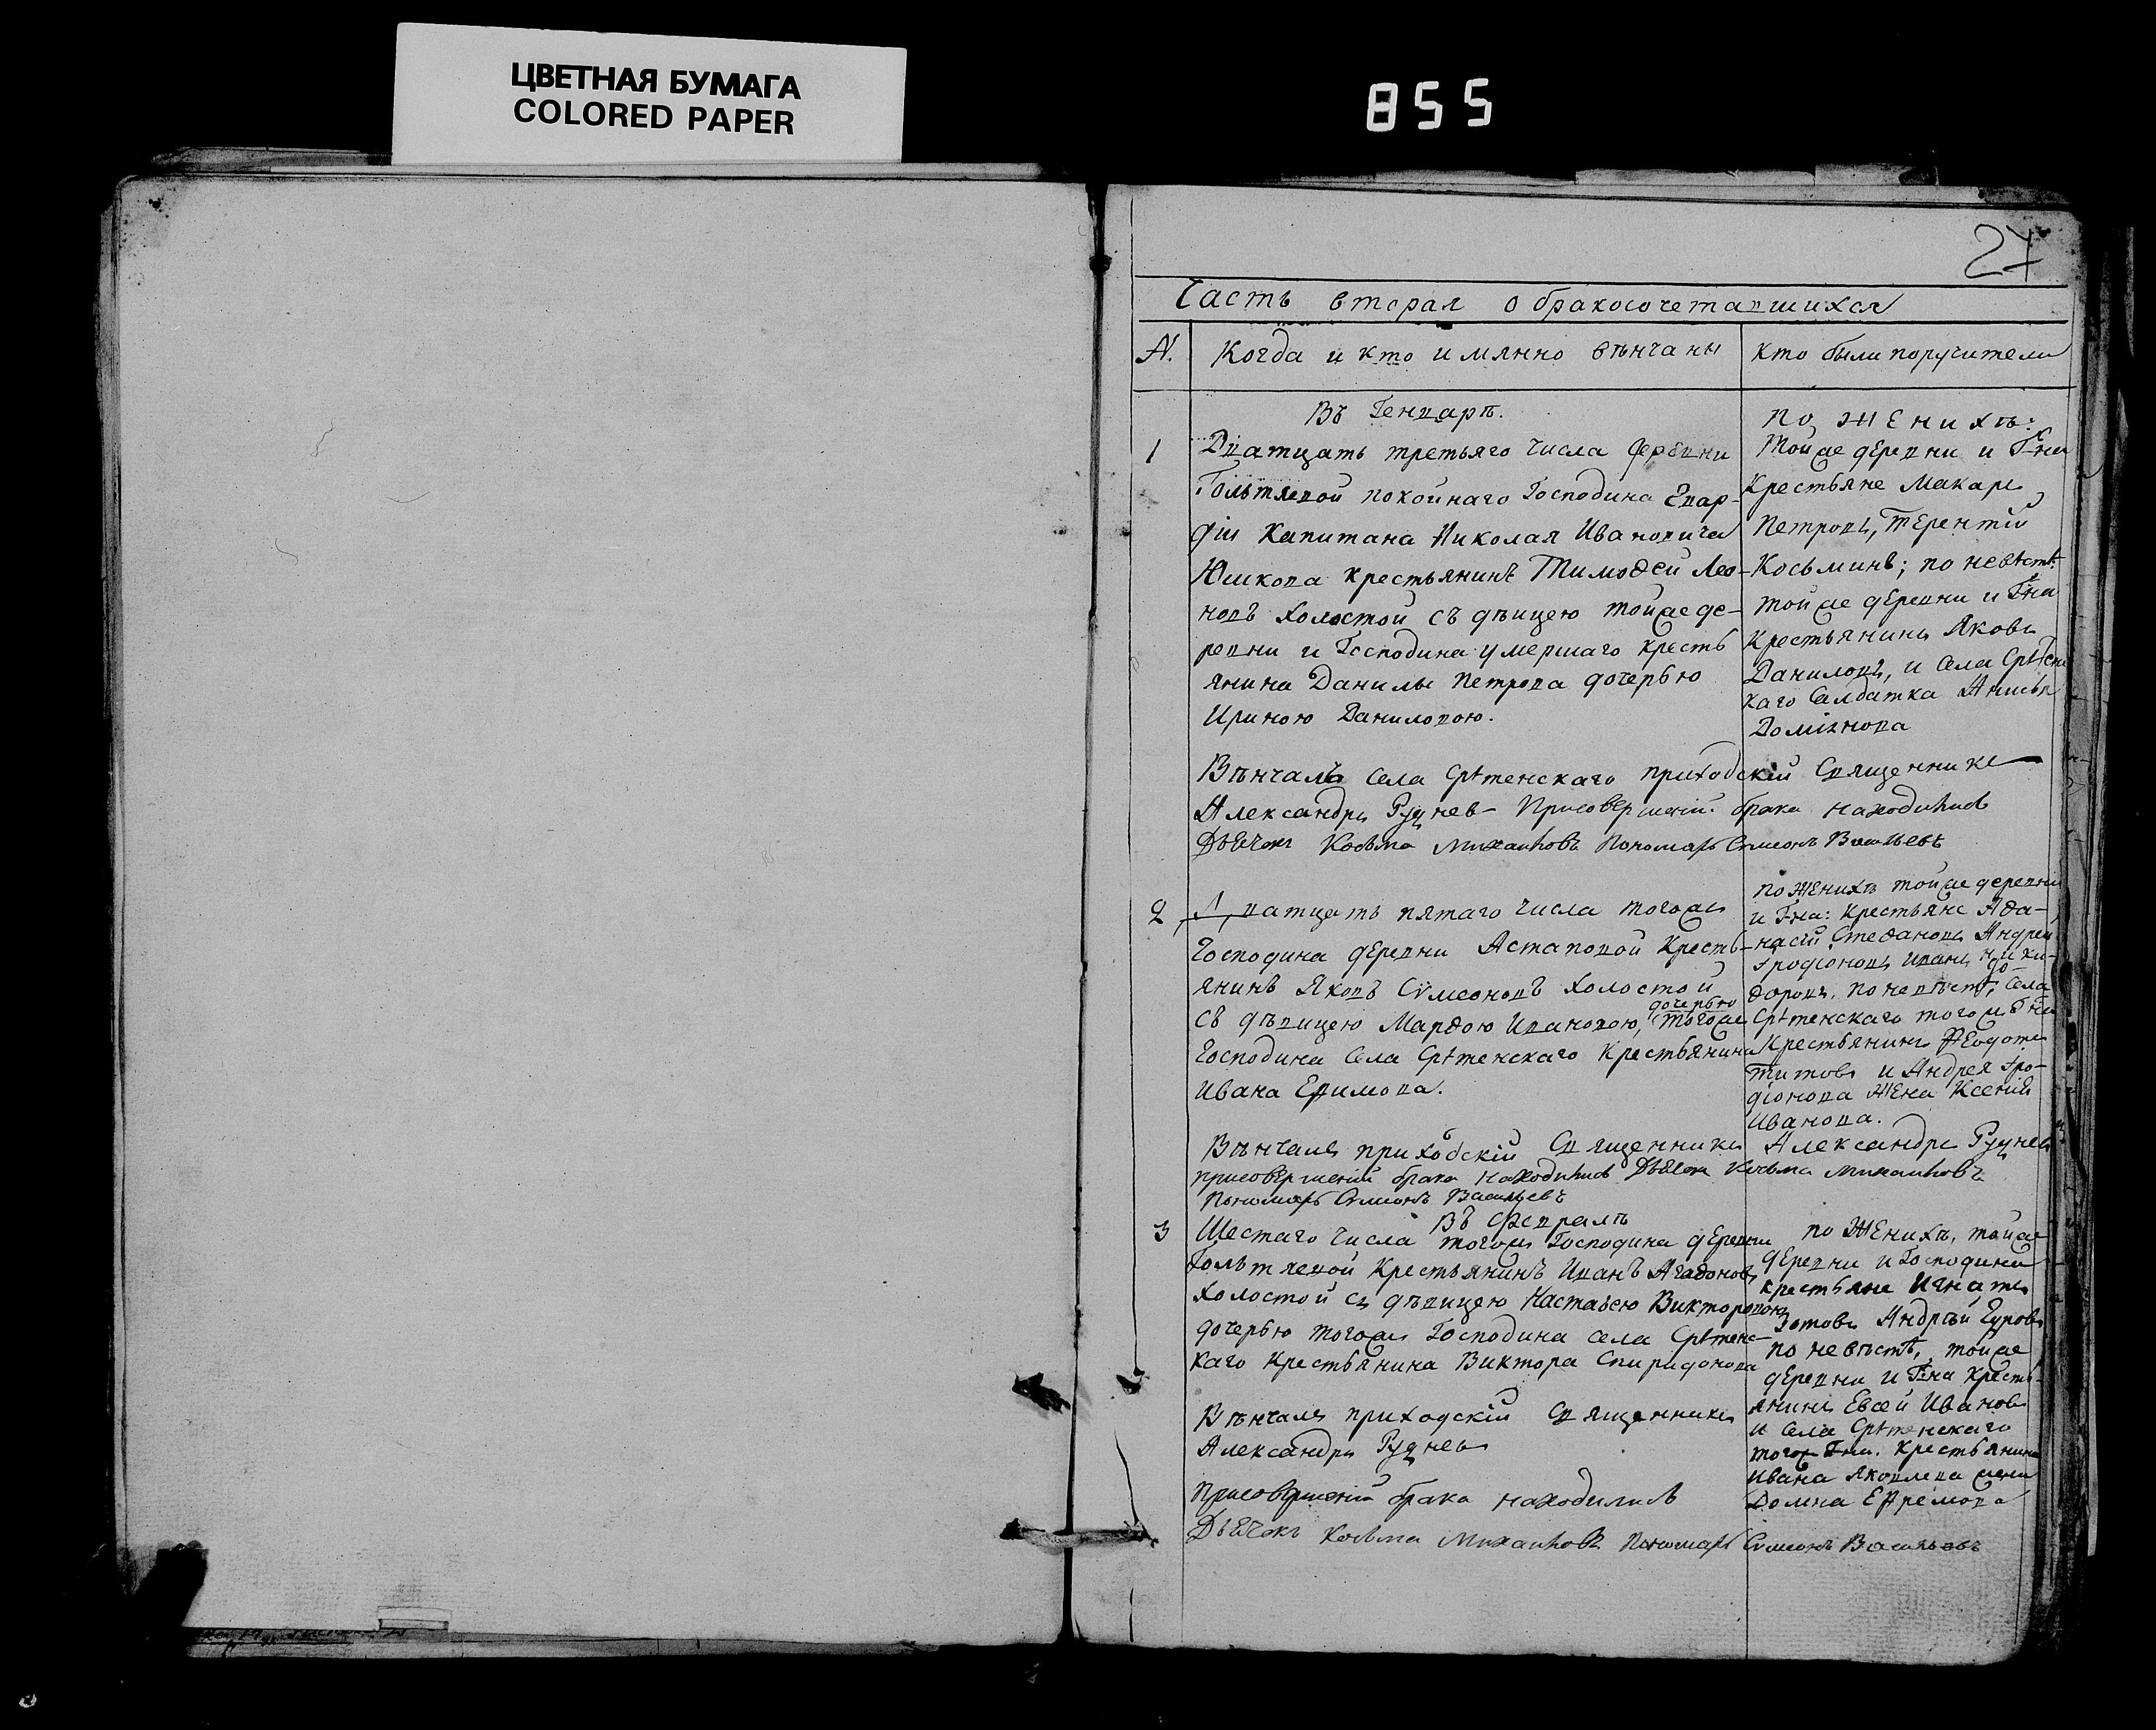 ЦВЕТНАЯ БУМАГА
COLORED PAPER
855
27
Часть вторая о бракосочетавшихся
№. Когда и кто имянно вѣнчаны
кто были поручители
Въ Генварѣ.
1 Дватцать третьяго числа деревни
Гольтяевой покойнаго Господина Гвар-
діи Капитана Николая Ивановича
Юшкова крестьянинъ Тимоѳей Лео-
новъ холостой съ дѣвицею тойже де-
ревни и Господина умершаго кресть
янина Данилы Петрова дочерью
Ириною Даниловою.
по женихѣ:
тойже деревни и Гна
Крестьяне Макаръ
Петровъ, Терентій
Косьминъ; по невѣстѣ
тойже деревни и Гна
Крестьянинъ Яковъ
Даниловъ, и села Срѣтенс
каго Салдатка Анисья
Доміянова
Вѣнчалъ села Срѣтенскаго приходскій Священникъ
Александръ Руднев Присовершеніи брака находились
Дьячекъ Косьма Михаиловъ Пономарь Сѵмеонъ Васильевъ
2 Дватцать пятаго числа тогоже
Господина деревни Астаповой Кресть-
янинъ Яковъ Сѵмеоновъ холостой
съ дѣвицею Марѳою Ивановою, дочерью тогоже
Господина села Срѣтенскаго Крестьянина
Ивана Ефимова.
по женихѣ тойже деревни
и Гна: Крестьяне Аѳа-
насій Стеѳановъ Андрей
Иродіоновъ Иванъ Ники-
ѳоровъ. по невѣстѣ, села
Срѣтенскаго тогожъ Гна
Крестьянинъ Ѳеодотъ
Титовъ и Андрея Иро-
діонова жена Ксенія
Иванова.
Вѣнчалъ приходскій Священникъ Александръ Рудневъ
присовершеніи брака находились Дьячекъ Косьма Михаиловъ
Пономарь Сѵмеонъ Васильевъ
Въ Февралѣ
3 Шестаго числа тогожъ Господина деревни
Гольтяевой Крестьянинъ Иванъ Агаѳоновъ
холостой съ дѣвицею Настасьею Викторовою
дочерью тогожъ Господина села Срѣтенс-
каго Крестьянина Виктора Спиридонова
по женихѣ, тойже
деревни и Господина
крестьяне Игнатъ
Зотовъ Андрѣй Гуровъ
по невѣстѣ, тойже
деревни и Гна кресть-
янинъ Евсей Ивановъ
и села Срѣтенскаго
тогож Гна. Крестьянина
Ивана Яковлева жена
Домна Ефремова
Вѣнчалъ приходскій Священникъ
Александръ Рудневъ
Присовершеніи брака находились
Дьячекъ Косьма Михаиловъ Пономарь Сѵмеонъ Васильевъ